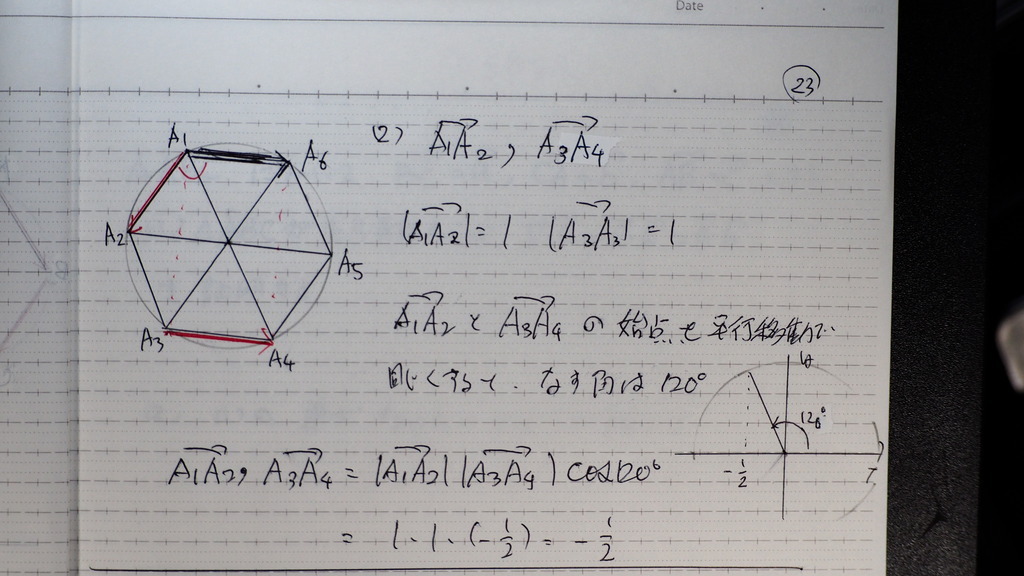 Date
23
A1
A6
A2
A5
A3
A4
(2) A1A2, A3A4
|A1A2| = 1 |A3A3| = 1
A1A2 と A3A4 の 始点を平行移動で
同じくすると、なす角は 120°
120°
-1/2
A1A2, A3A4 = |A1A2| |A3A4| cos120°
= 1・1・(-1/2) = -1/2